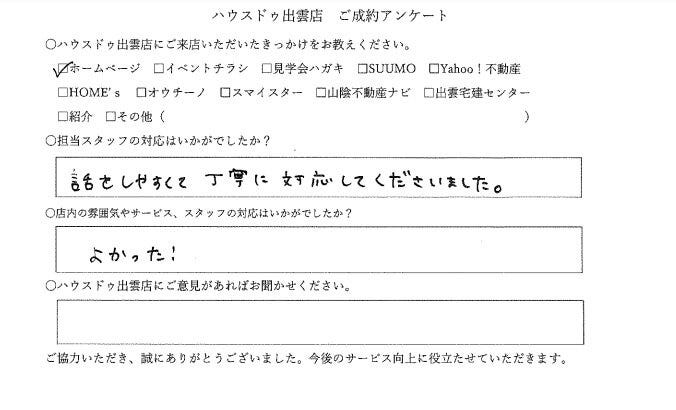 ハウスドゥ出雲店　ご成約アンケート
○ハウスドゥ出雲店にご来店いただいたきっかけをお教えください。
☑ホームページ　□イベントチラシ　□見学会ハガキ　□SUUMO　□Yahoo！不動産
□HOME's　□オウチーノ　□スマイスター　□山陰不動産ナビ　□出雲宅建センター
□紹介　□その他（　　　　　　　　　　　　　　　　　　　　　　　　　　　　　　）
○担当スタッフの対応はいかがでしたか？
話をしやすくて 丁寧に 対応してくださいました。
○店内の雰囲気やサービス、スタッフの対応はいかがでしたか？
よかった！
○ハウスドゥ出雲店にご意見があればお聞かせください。
ご協力いただき、誠にありがとうございました。今後のサービス向上に役立たせていただきます。